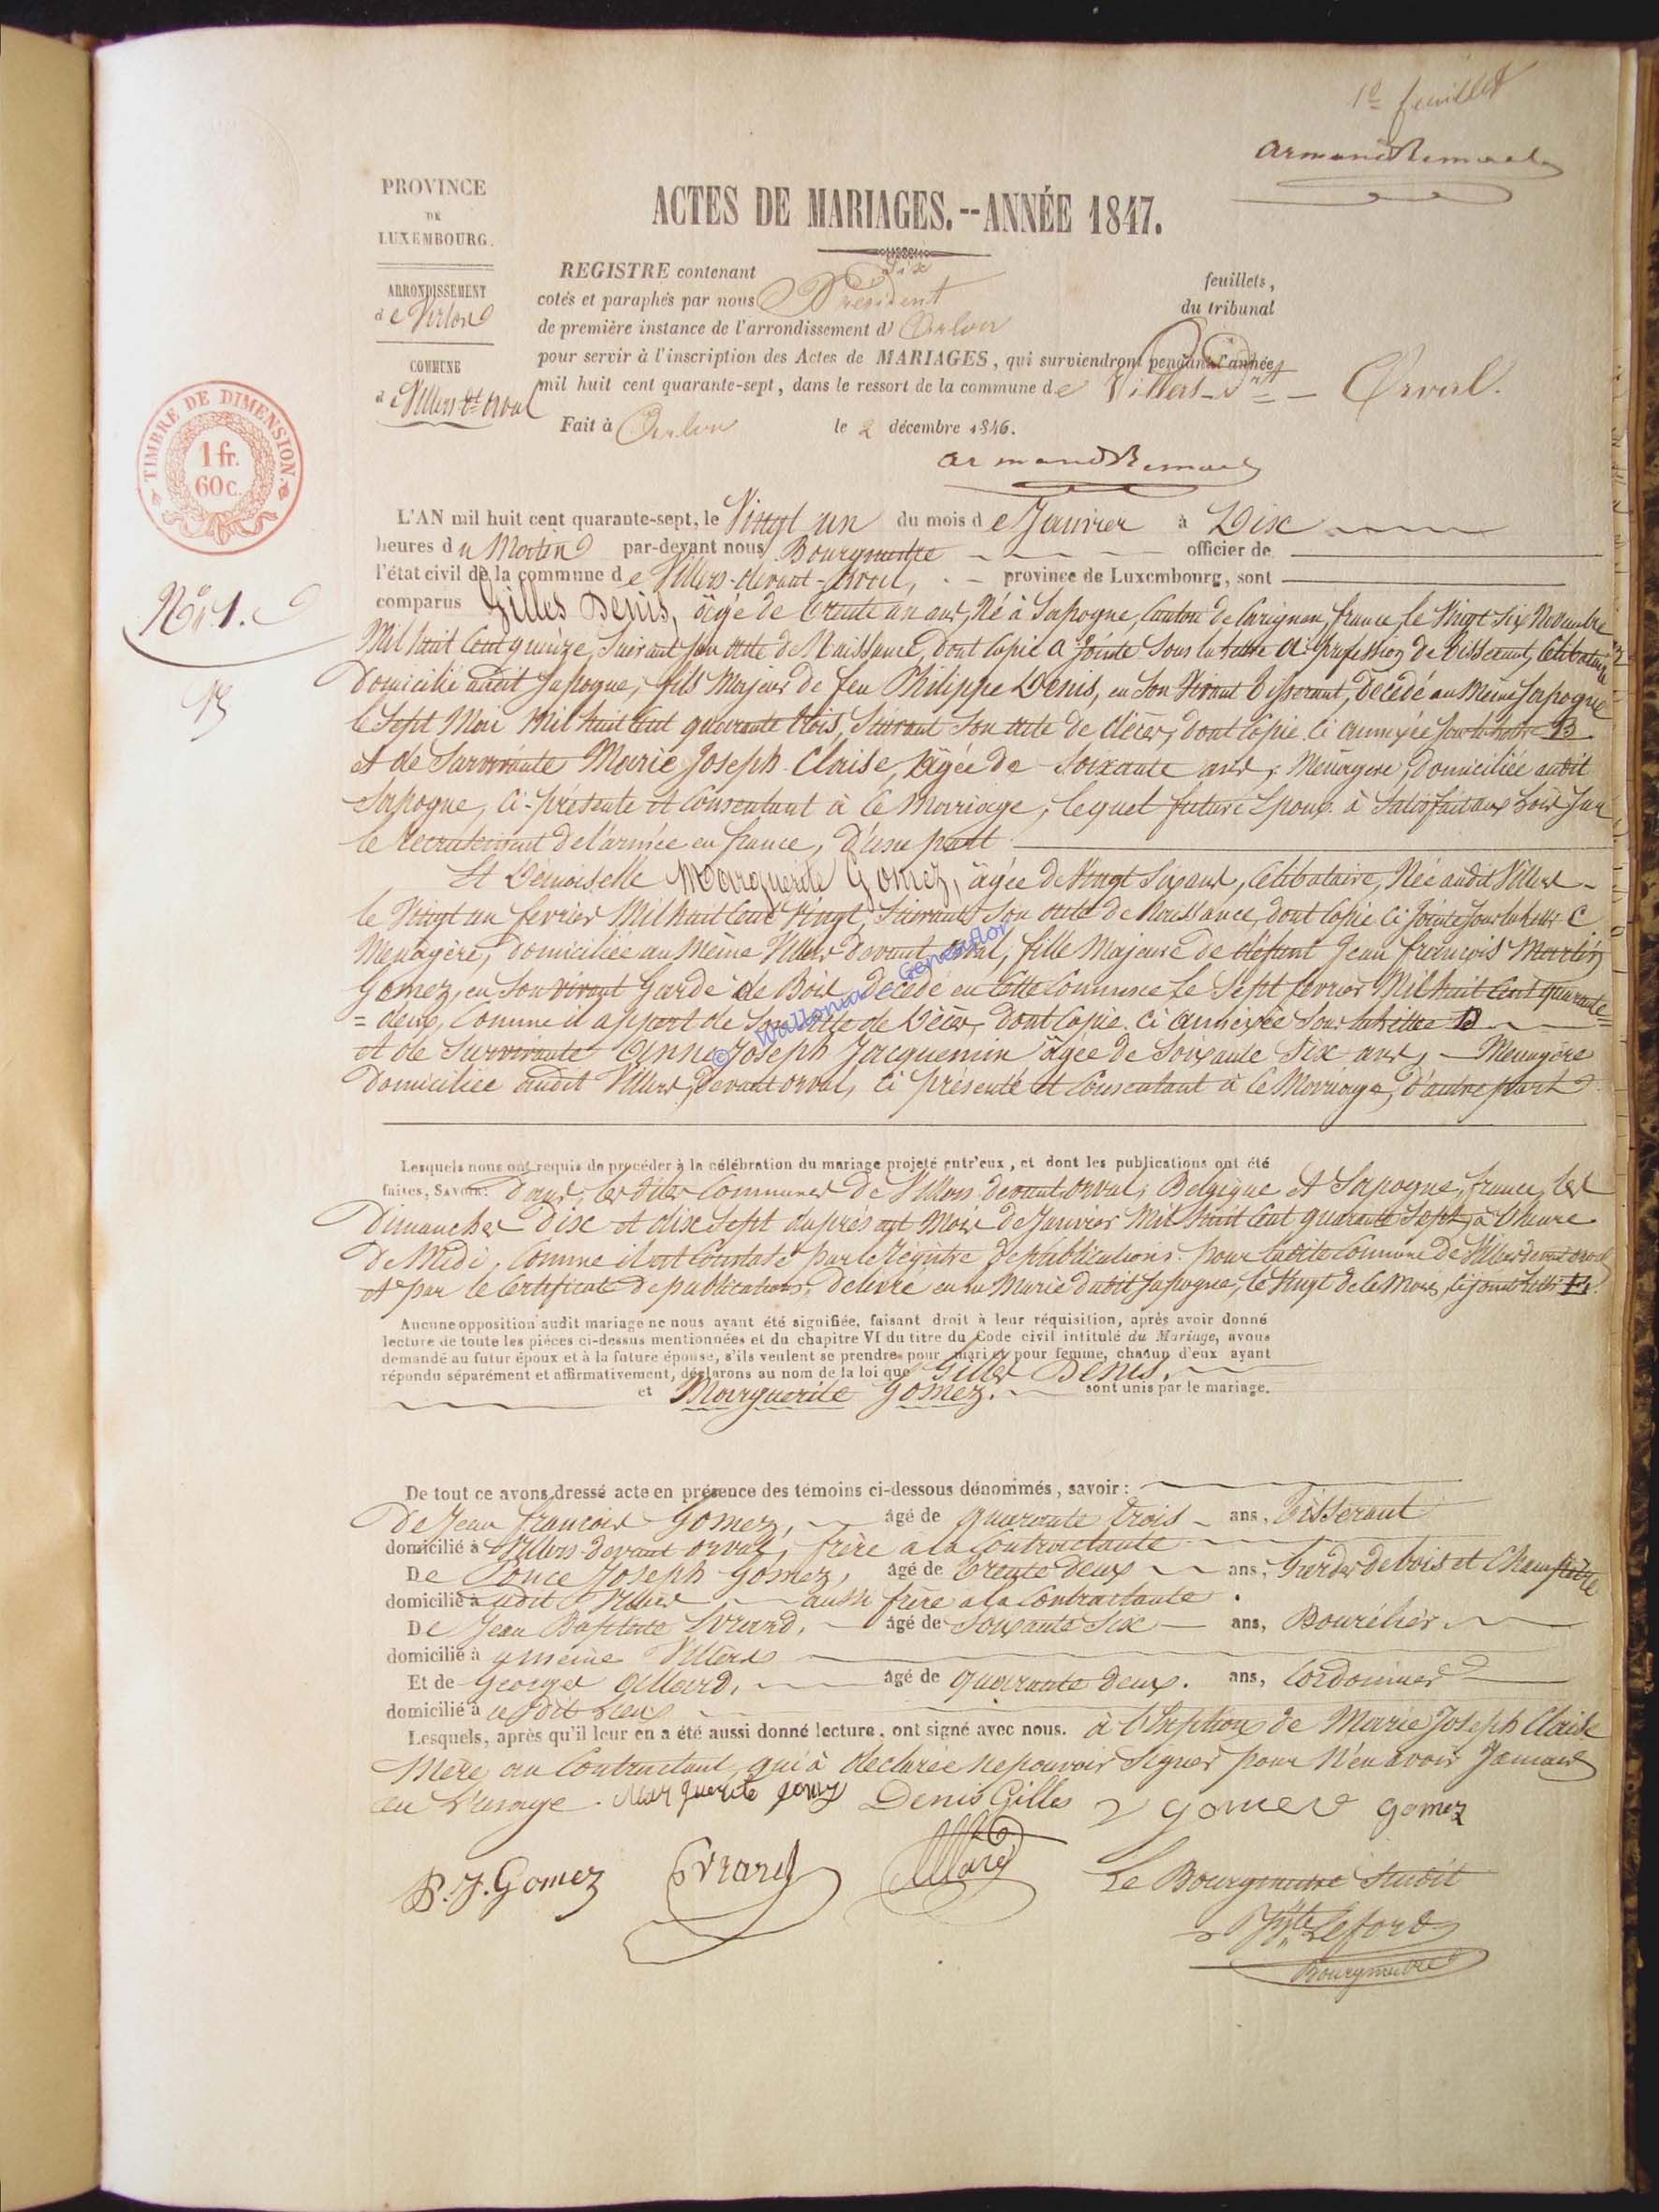 1e feuillet
Armand Remacle
PROVINCE
DE
LUXEMBOURG.
ARRONDISSEMENT
de Virton
COMMUNE
de Villers dt orval
TIMBRE DE DIMENSION.
1 fr.
60 c.
ACTES DE MARIAGES.--ANNÉE 1847.
REGISTRE contenant Six feuillets,
cotés et paraphés par nous Président du tribunal
de première instance de l'arrondissement d' Arlon
pour servir à l'inscription des Actes de MARIAGES, qui surviendront pendant l'année
mil huit cent quarante-sept, dans le ressort de la commune de Villers-dt-Orval.
Fait à Arlon le 2 décembre 1846.
Armand Remacle
No. 1.
L'AN mil huit cent quarante-sept, le Vingt un du mois de Janvier à Dix
heures du Matin par-devant nous Bourgmestre officier de
l'état civil de la commune de Villers-devant-orval, province de Luxembourg, sont
comparus Gilles Denis, âgé de trente un ans, Né à Sapogne, Canton de Carignan, france, le Vingt Six Novembre
Mil huit Cent quinze, Suivant Son acte de Naissance, Dont Copie a Jointe Sous la lettre A. profession de tisserant, Celibataire
Domicilié audit Sapogne, fils Majeur de feu Philippe Denis, en Son Vivant tisserant, Décédé au Même Sapogne
le Sept Mai Mil huit Cent quarante trois, Suivant Son acte de décès, dont Copie ci annexée Sous la lettre B
et de Survivante Marie Joseph Claise, âgée de Soixante ans, Menagere, domiciliée audit
Sapogne, Ci-présente et Consentant à Ce Mariage, lequel futur Epoux à Satisfait aux Lois Sur
le recrutement de l'armée en france, D'une part.
Et Demoiselle Marguerite Gomez, âgée de Vingt Six ans, Célibataire, Née audit Villers
le Vingt un fevrier Mil huit Cent Vingt, Suivant Son acte de Naissance, dont Copie Ci Jointe Sous la lettre C
Menagère, Domiciliée au Même Villers devant orval, fille Majeure de défunt Jean françois Martin
Gomez, en Son vivant Garde de Bois, Décédé en Cette Commune le Sept fevrier Mil huit Cent quarante
= deux, Comme il appert de Son acte de Décès, Dont Copie Ci annexée Sous la lettre D
et de Survivante Anne Joseph Jacquemin âgée de Soixante Six ans, Menagère
Domiciliée audit Villers devant orval, Ci présente et Consentant à Ce Mariage, d'autre part
© Wallonia - Geneaflor
Lesquels nous ont requis de procéder à la célébration du mariage projeté entr'eux, et dont les publications ont été
faites, SAVOIR: Dans les dites Communes de Villers devant orval, Belgique et Sapogne, france, les
Dimanches Dix et dix Sept du présent Mois de Janvier Mil huit Cent quarante Sept, à l'heure
De Midi, Comme il est Constaté par le Régistre de publications pour ladite Commune de Villers devant orval
et par le Certificat de publications, delivré en la Mairie dudit Sapogne, le Vingt de Ce Mois, Ci joint lettre E.
Aucune opposition audit mariage ne nous ayant été signifiée, faisant droit à leur réquisition, après avoir donné
lecture de toute les pièces ci-dessus mentionnées et du chapitre VI du titre du Code civil intitulé du Mariage, avons
demandé au futur époux et à la future épouse, s'ils veulent se prendre pour mari et pour femme, chacun d'eux ayant
répondu séparément et affirmativement, déclarons au nom de la loi que Gilles Denis,
et Marguerite Gomez. sont unis par le mariage.
De tout ce avons dressé acte en présence des témoins ci-dessous dénommés, savoir :
De Jean françois Gomez, âgé de quarante trois ans, Tisserant
domicilié à Villers devant orval, frère à la Contractante
De Ponce Joseph Gomez, âgé de trente deux ans, Garde de bois et Champêtre
domicilié audit Villers aussi frère à la Contractante.
De Jean Baptiste Evrard, âgé de Soixante Six ans, Bourélier.
domicilié à même Villers
Et de George Allard, âgé de quarante deux. ans, Cordonnier
domicilié à ce dit Lieu
Lesquels, après qu'il leur en a été aussi donné lecture, ont signé avec nous. à l'Exeption de Marie Joseph Claise
Mère au Contractant, qui à déclarée ne pouvoir Signer pour N'en avoir Jamais
eu L'usage. Marguerite gomez Denis Gilles gomez gomez
P. J. Gomez Evrard Allard Le Bourgmestre Susdit
Bte Leford
Bourgmestre